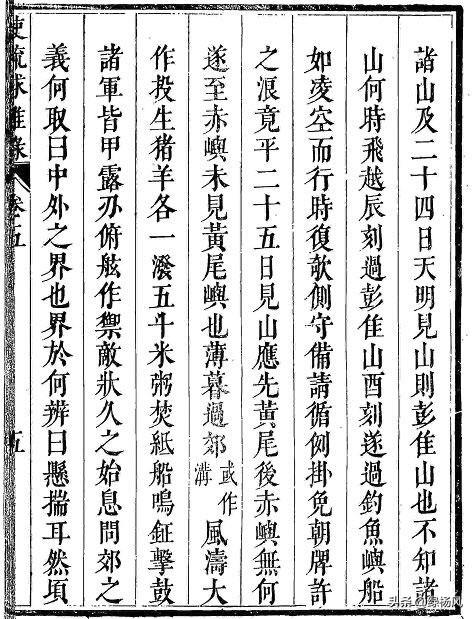 諸山及二十四日天明見山則彭佳山也不知諸
山何時飛越辰刻過彭佳山酉刻遂過釣魚嶼船
如凌空而行時復欹側守備請循例掛免朝牌許
之浪竟平二十五日見山應先黃尾後赤嶼無何
遂至赤嶼未見黃尾嶼也薄暮過郊或作溝風濤大
作投生猪羊各一潑五斗米粥焚紙船鳴鉦擊鼓
諸軍皆甲露刃俯舷作禦敵狀久之始息問郊之
義何取曰中外之界也界於何辨曰懸揣耳然頃
使琉球雜錄 卷五 五
头条 @绿杨风